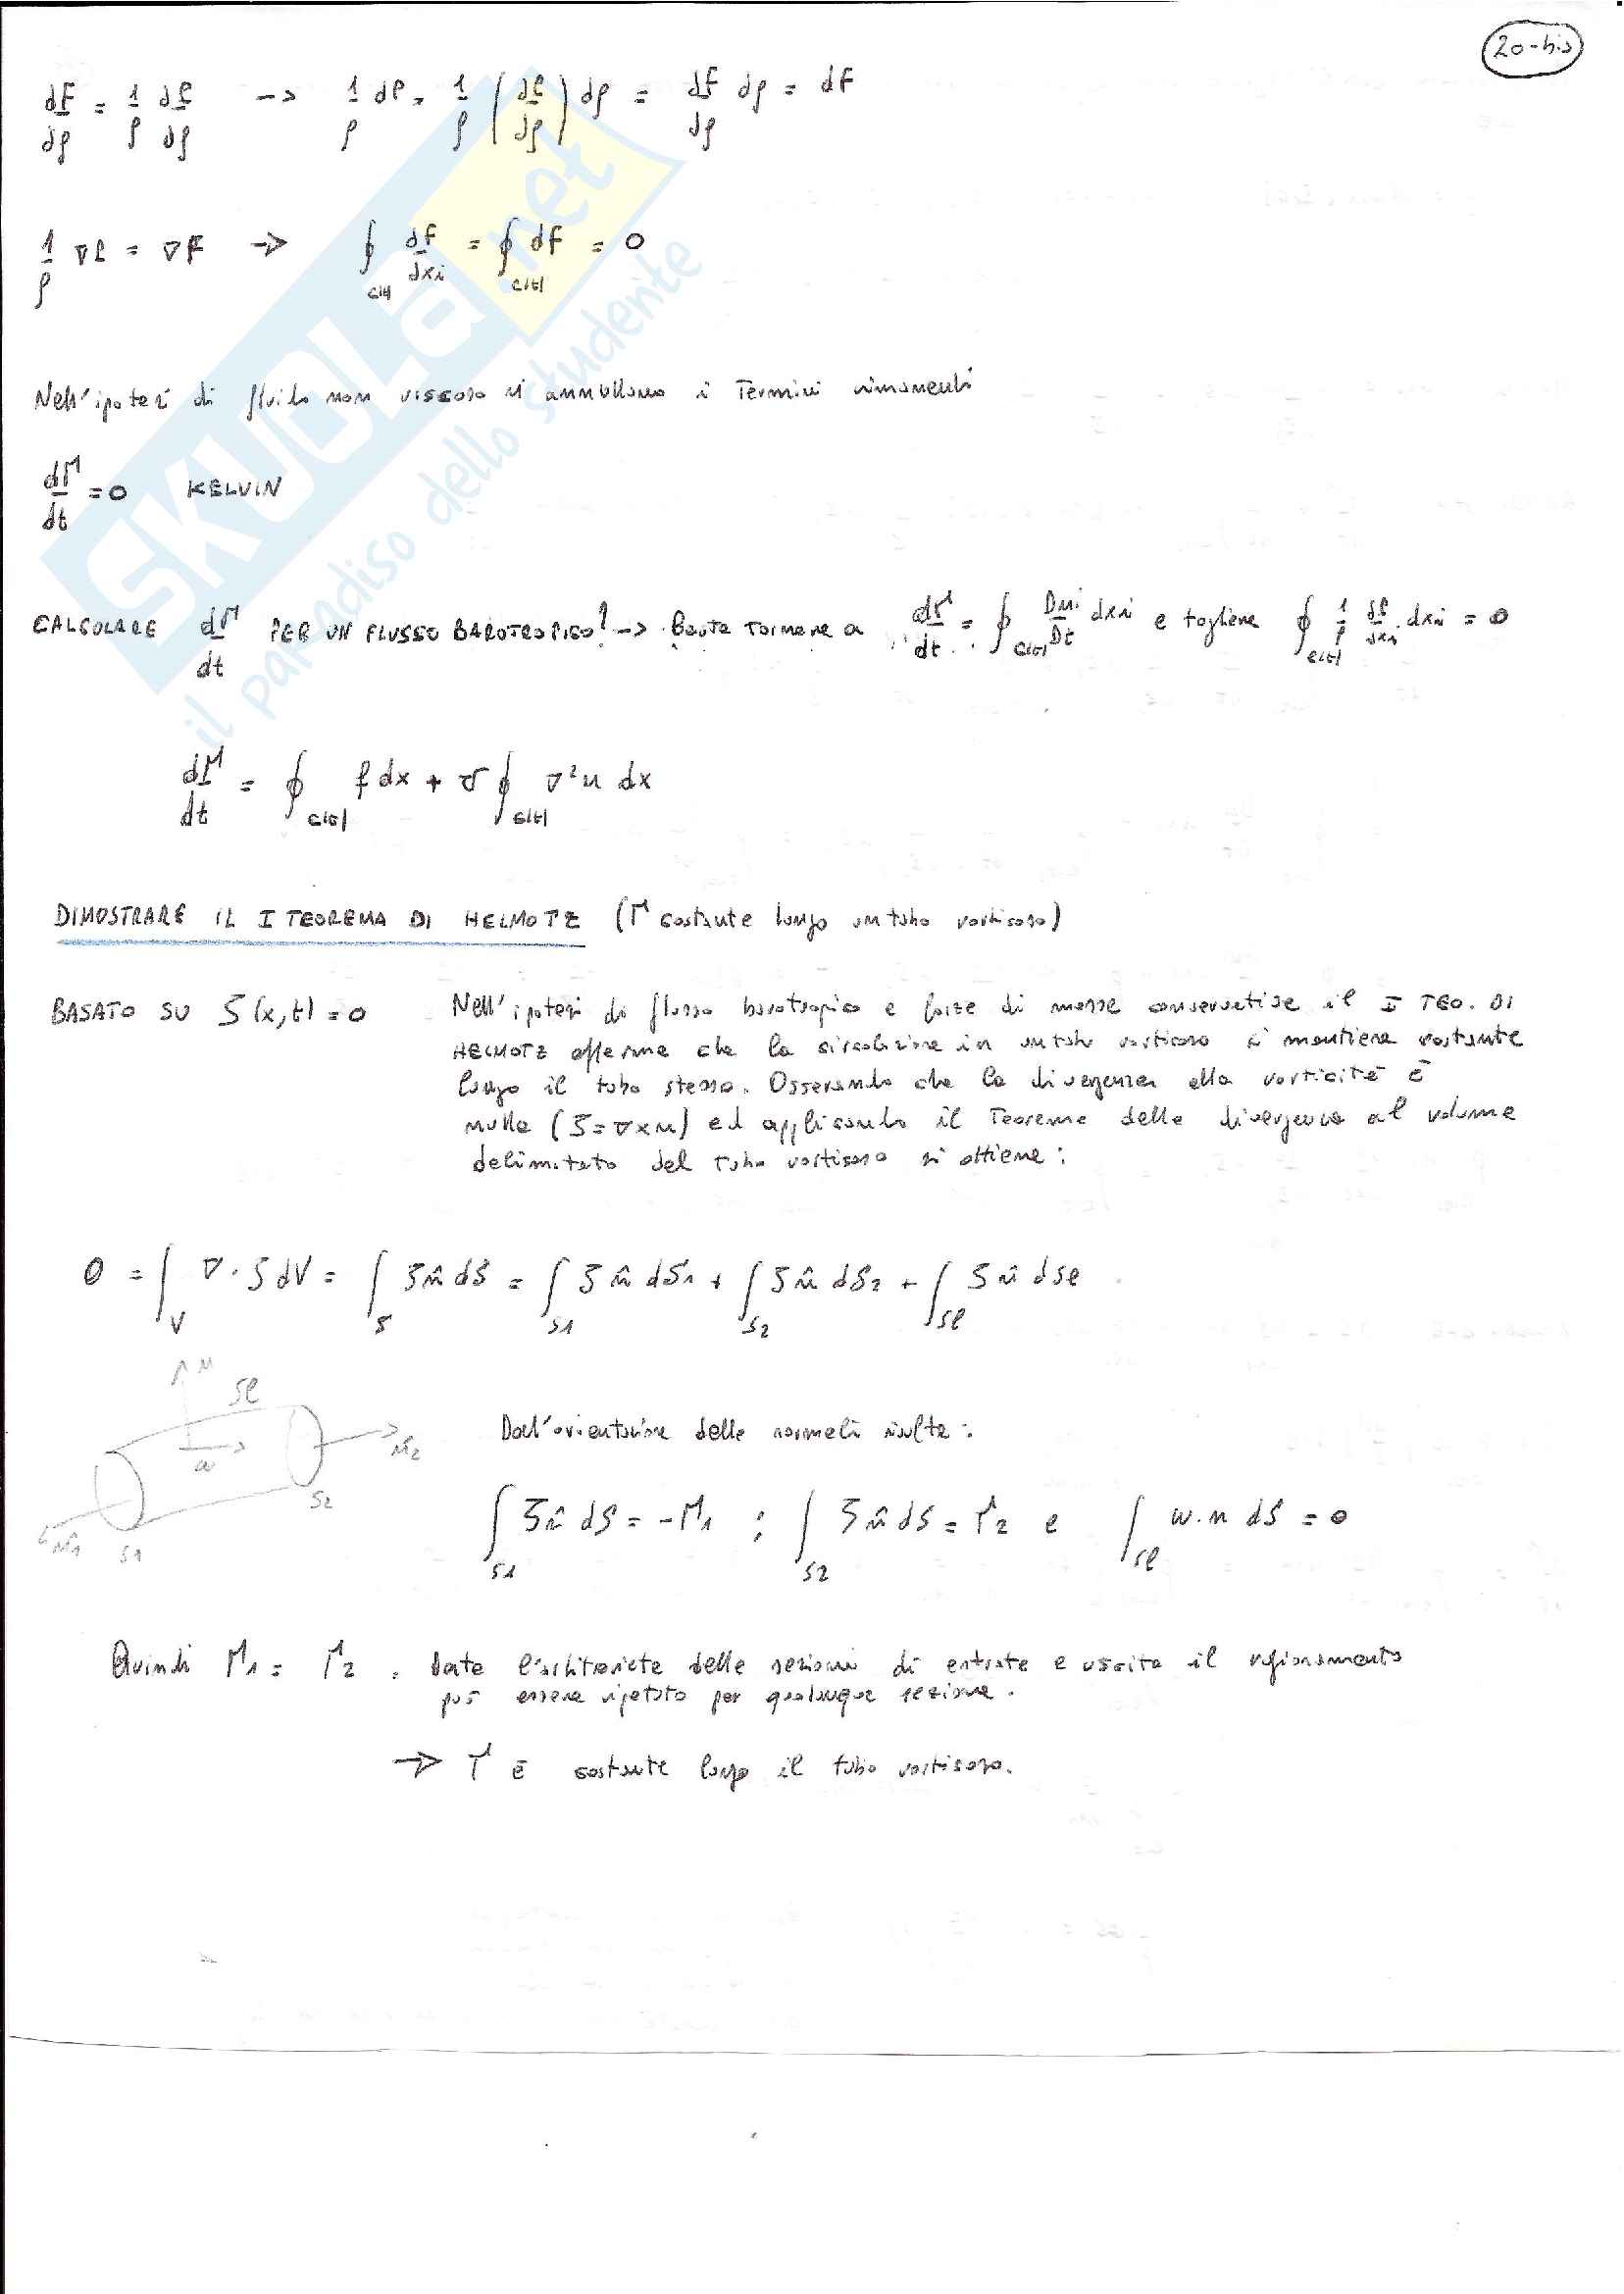 20-bis
dF/dρ = 1/ρ dP/dρ -> 1/ρ dP = 1/ρ (dP/dρ) dρ = dF/dρ dρ = dF
1/ρ ∇P = ∇F -> ∮c(t) dF/dxi = ∮c(t) dF = 0
Nell'ipotesi di fluido non viscoso si annullano i termini rimanenti
dΓ/dt = 0 KELVIN
CALCOLARE dΓ/dt PER UN FLUSSO BAROTROPICO? -> Basta tornare a dΓ/dt = ∮c(t) Dui/Dt dxi e togliere ∮c(t) 1/ρ dP/dxi dxi = 0
dΓ/dt = ∮c(t) f dx + ν ∮c(t) ∇²u dx
DIMOSTRARE IL I TEOREMA DI HELMOTZ (Γ costante lungo un tubo vorticoso)
BASATO SU ζ(x,t) = 0
Nell'ipotesi di flusso barotropico e forze di masse conservative il I TEO. DI
HELMOTZ afferma che la circolazione in un tubo vorticoso si mantiene costante
lungo il tubo stesso. Osservando che la divergenza della vorticità è
nulla (ζ = ∇×u) ed applicando il Teorema della divergenza al volume
delimitato dal tubo vorticoso si ottiene:
0 = ∫V ∇·ζ dV = ∫S ζ n̂ dS = ∫S1 ζ n̂ dS1 + ∫S2 ζ n̂ dS2 + ∫Sl ζ n̂ dSl
n
Sl
n2
w
S2
n1
S1
Dall'orientazione delle normali risulta:
∫S1 ζ n̂ dS = -Γ1 ; ∫S2 ζ n̂ dS = Γ2 e ∫Sl w·n dS = 0
Quindi Γ1 = Γ2. Data l'arbitrarietà delle sezioni di entrata e uscita il ragionamento
può essere ripetuto per qualunque sezione.
-> Γ è costante lungo il tubo vorticoso.
SKUOLA.net
il paradiso dello studente